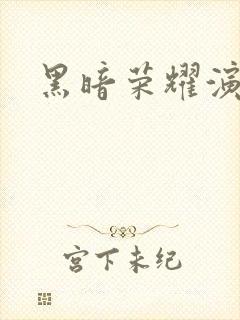 黑暗荣耀演
宫下未纪